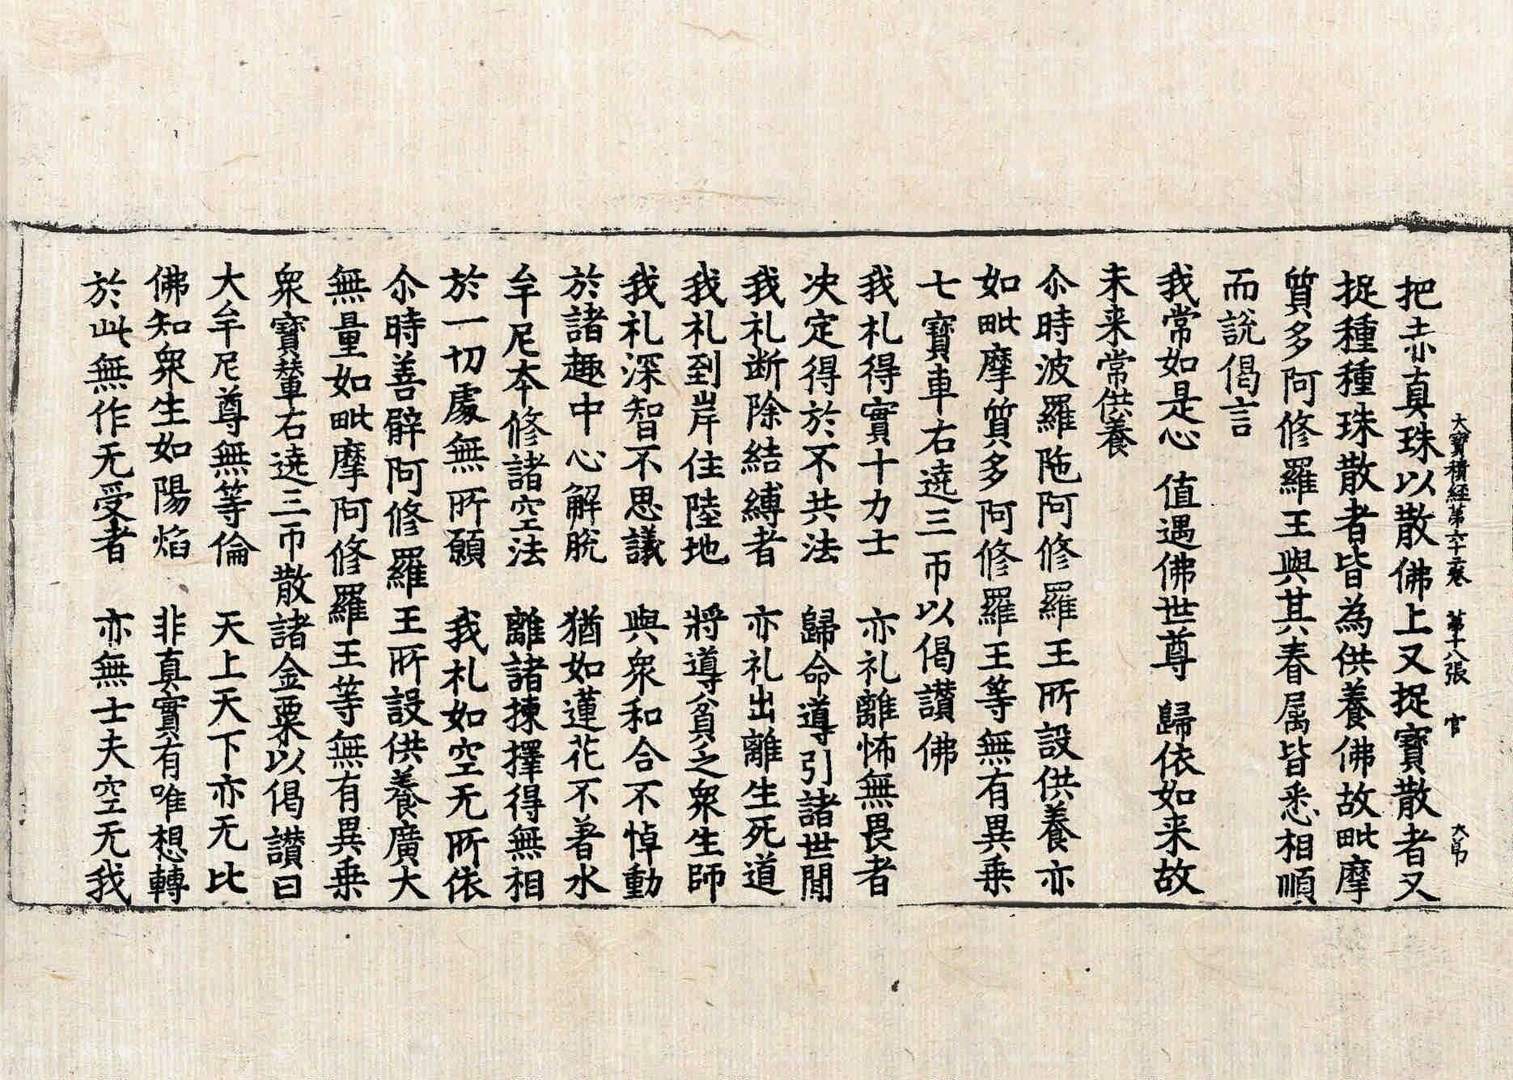 大寶積經第六十二卷 第十八張 官 大吊
把赤真珠以散佛上又捉寶散者又
捉種種珠散者皆為供養佛故毗摩
質多阿修羅王與其眷属皆悉相順
而說偈言
我常如是心 值遇佛世尊 歸依如来故
未来常供養
尒時波羅陁阿修羅王所設供養亦
如毗摩質多阿修羅王等無有異乗
七寶車右遶三帀以偈讃佛
我礼得實十力士 亦礼離怖無畏者
决定得於不共法 歸命導引諸世間
我礼断除結縛者 亦礼出離生死道
我礼到岸住陸地 將導貧乏衆生師
我礼深智不思議 與衆和合不悼動
於諸趣中心解脫 猶如蓮花不著水
牟尼夲修諸空法 離諸揀擇得無相
於一切處無所願 我礼如空无所依
尒時善臂阿修羅王所設供養廣大
無量如毗摩阿修羅王等無有異乗
衆寶輦右遶三帀散諸金粟以偈讃曰
大牟尼尊無等倫 天上天下亦无比
佛知衆生如陽焰 非真實有唯想轉
於此無作无受者 亦無士夫空无我